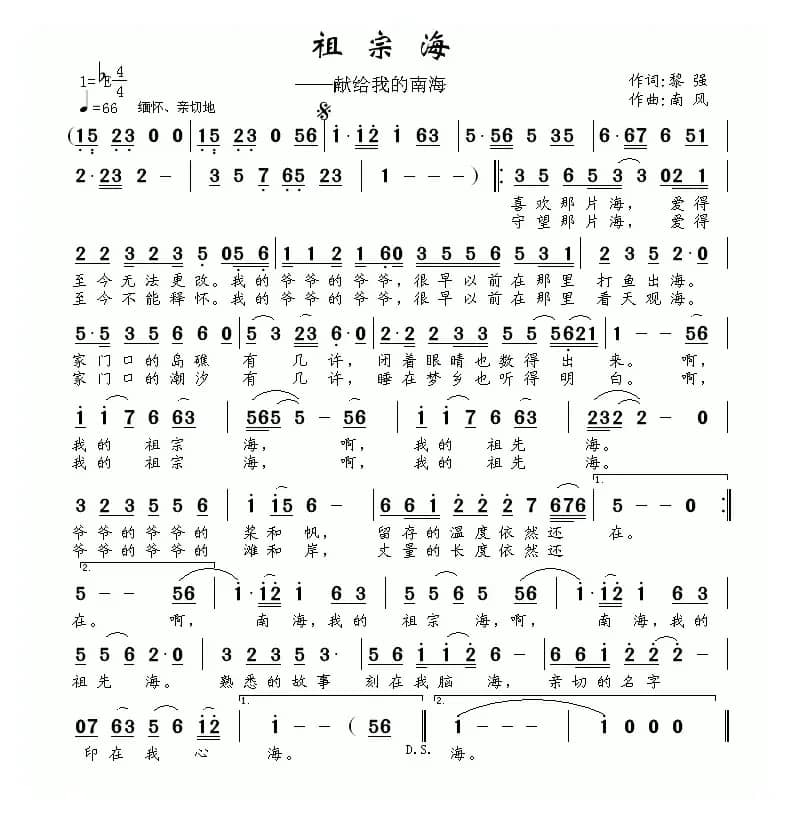 祖 宗 海
1=♭E 4/4 ——献给我的南海 作词:黎 强
♩=66 缅怀、亲切地 作曲:南 风
(15 23 0 0 | 15 23 0 56 | i· i2 i 63 | 5· 56 5 35 | 6· 67 6 51
2· 23 2 － | 3 5 7 65 23 | 1 － － － ) ‖: 3 5 6 5 3 3 02 1
喜欢那片海，爱得
守望那片海，爱得
2 2 3 2 3 5 05 6 | 1 1 2 1 60 3 5 5 6 5 3 1 | 2 3 5 2·0
至今无法更改。我的爷爷的爷爷，很早以前在那里 打鱼出海。
至今不能释怀。我的爷爷的爷爷，很早以前在那里 看天观海。
5·5 3 5 6 6 0 | 5 3 23 6·0 | 2·2 2 3 3 5 5 5621 | 1 － － 56
家门口的岛礁 有 几 许， 闭着眼睛也数得 出 来。 啊，
家门口的潮汐 有 几 许， 睡在梦乡也听得 明 白。 啊，
i i 7 6 63 | 565 5 － 56 | i i 7 6 63 | 232 2 － 0
我的 祖宗 海， 啊， 我的 祖先 海。
我的 祖宗 海， 啊， 我的 祖先 海。
3 2 3 5 5 6 | i i5 6 － | 6 6 i 2 2 2 7 676 | 1. 5 － － 0 :‖
爷爷的爷爷的 桨和帆， 留存的温度依然还 在。
爷爷的爷爷的 滩和岸， 丈量的长度依然还
2. 5 － － 56 | i· i2 i 63 | 5 5 6 5 56 | i· i2 i 6 3
在。 啊， 南 海，我的 祖 宗 海，啊， 南 海，我的
5 5 6 2·0 | 3 2 3 5 3· | 5 6 i i 2 6 － | 6 6 i 2 i 2 3
祖先 海。 熟悉的故事 刻在我脑 海， 亲切的名字
07 63 5 6 i2 | 1. i － － ( 56 ‖ 2. i － － － | i 0 0 0 ‖
印在 我 心 海。 D.S. 海。